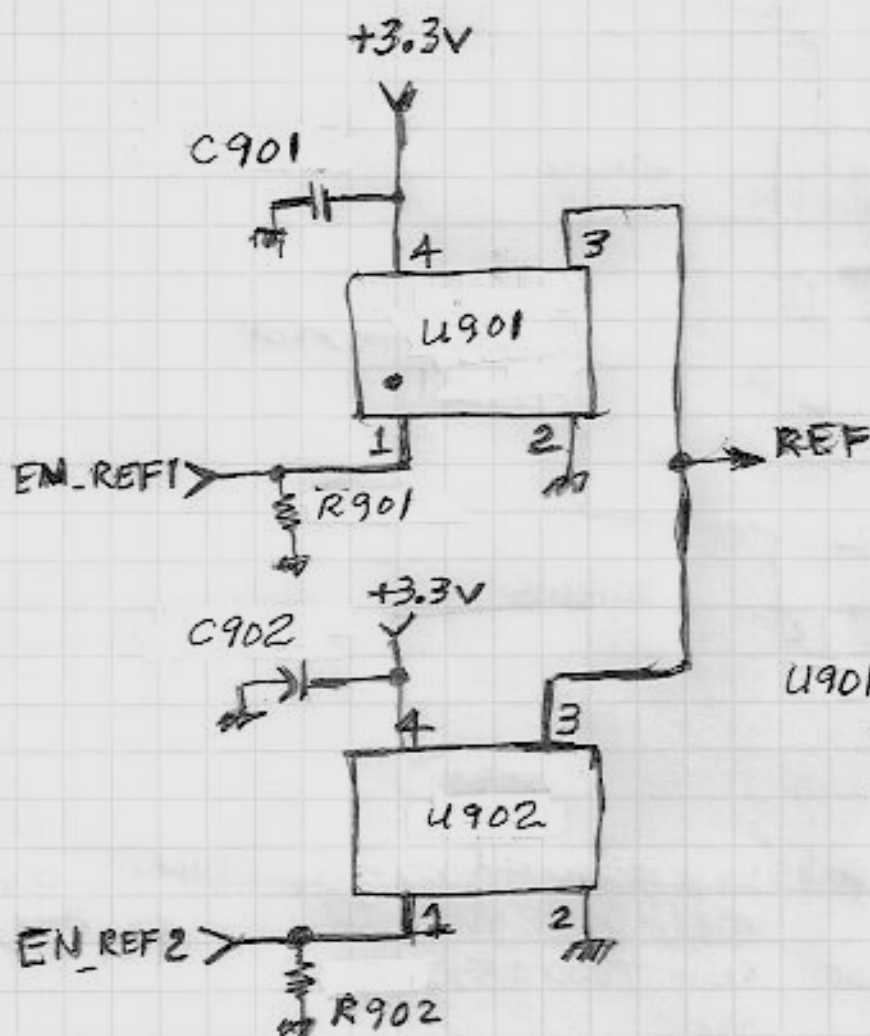 +3.3V
C901
4
3
U901
1
2
EN_REF1
R901
REF
+3.3V
C902
4
3
U901
U902
1
2
EN_REF2
R902